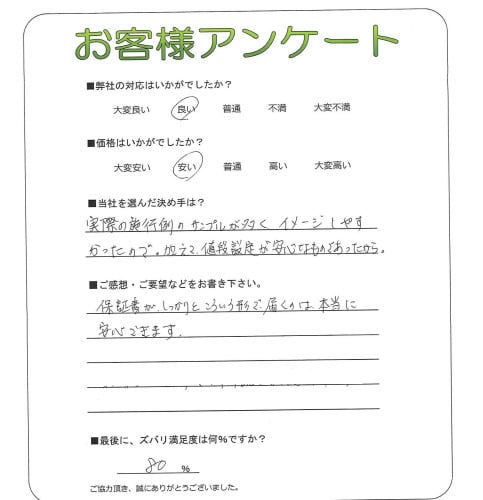 お客様アンケート
■弊社の対応はいかがでしたか？
大変良い 良い 普通 不満 大変不満
■価格はいかがでしたか？
大変安い 安い 普通 高い 大変高い
■当社を選んだ決め手は？
実際の施行例のサンプルが多く イメージしやす
かったので。加えて、値段設定が安心なものであったから。
■ご感想・ご要望などをお書き下さい。
保証書が、しっかりと こういう形で、届くのは、本当に
安心できます。
■最後に、ズバリ満足度は何%ですか？
80 %
ご協力頂き、誠にありがとうございました。